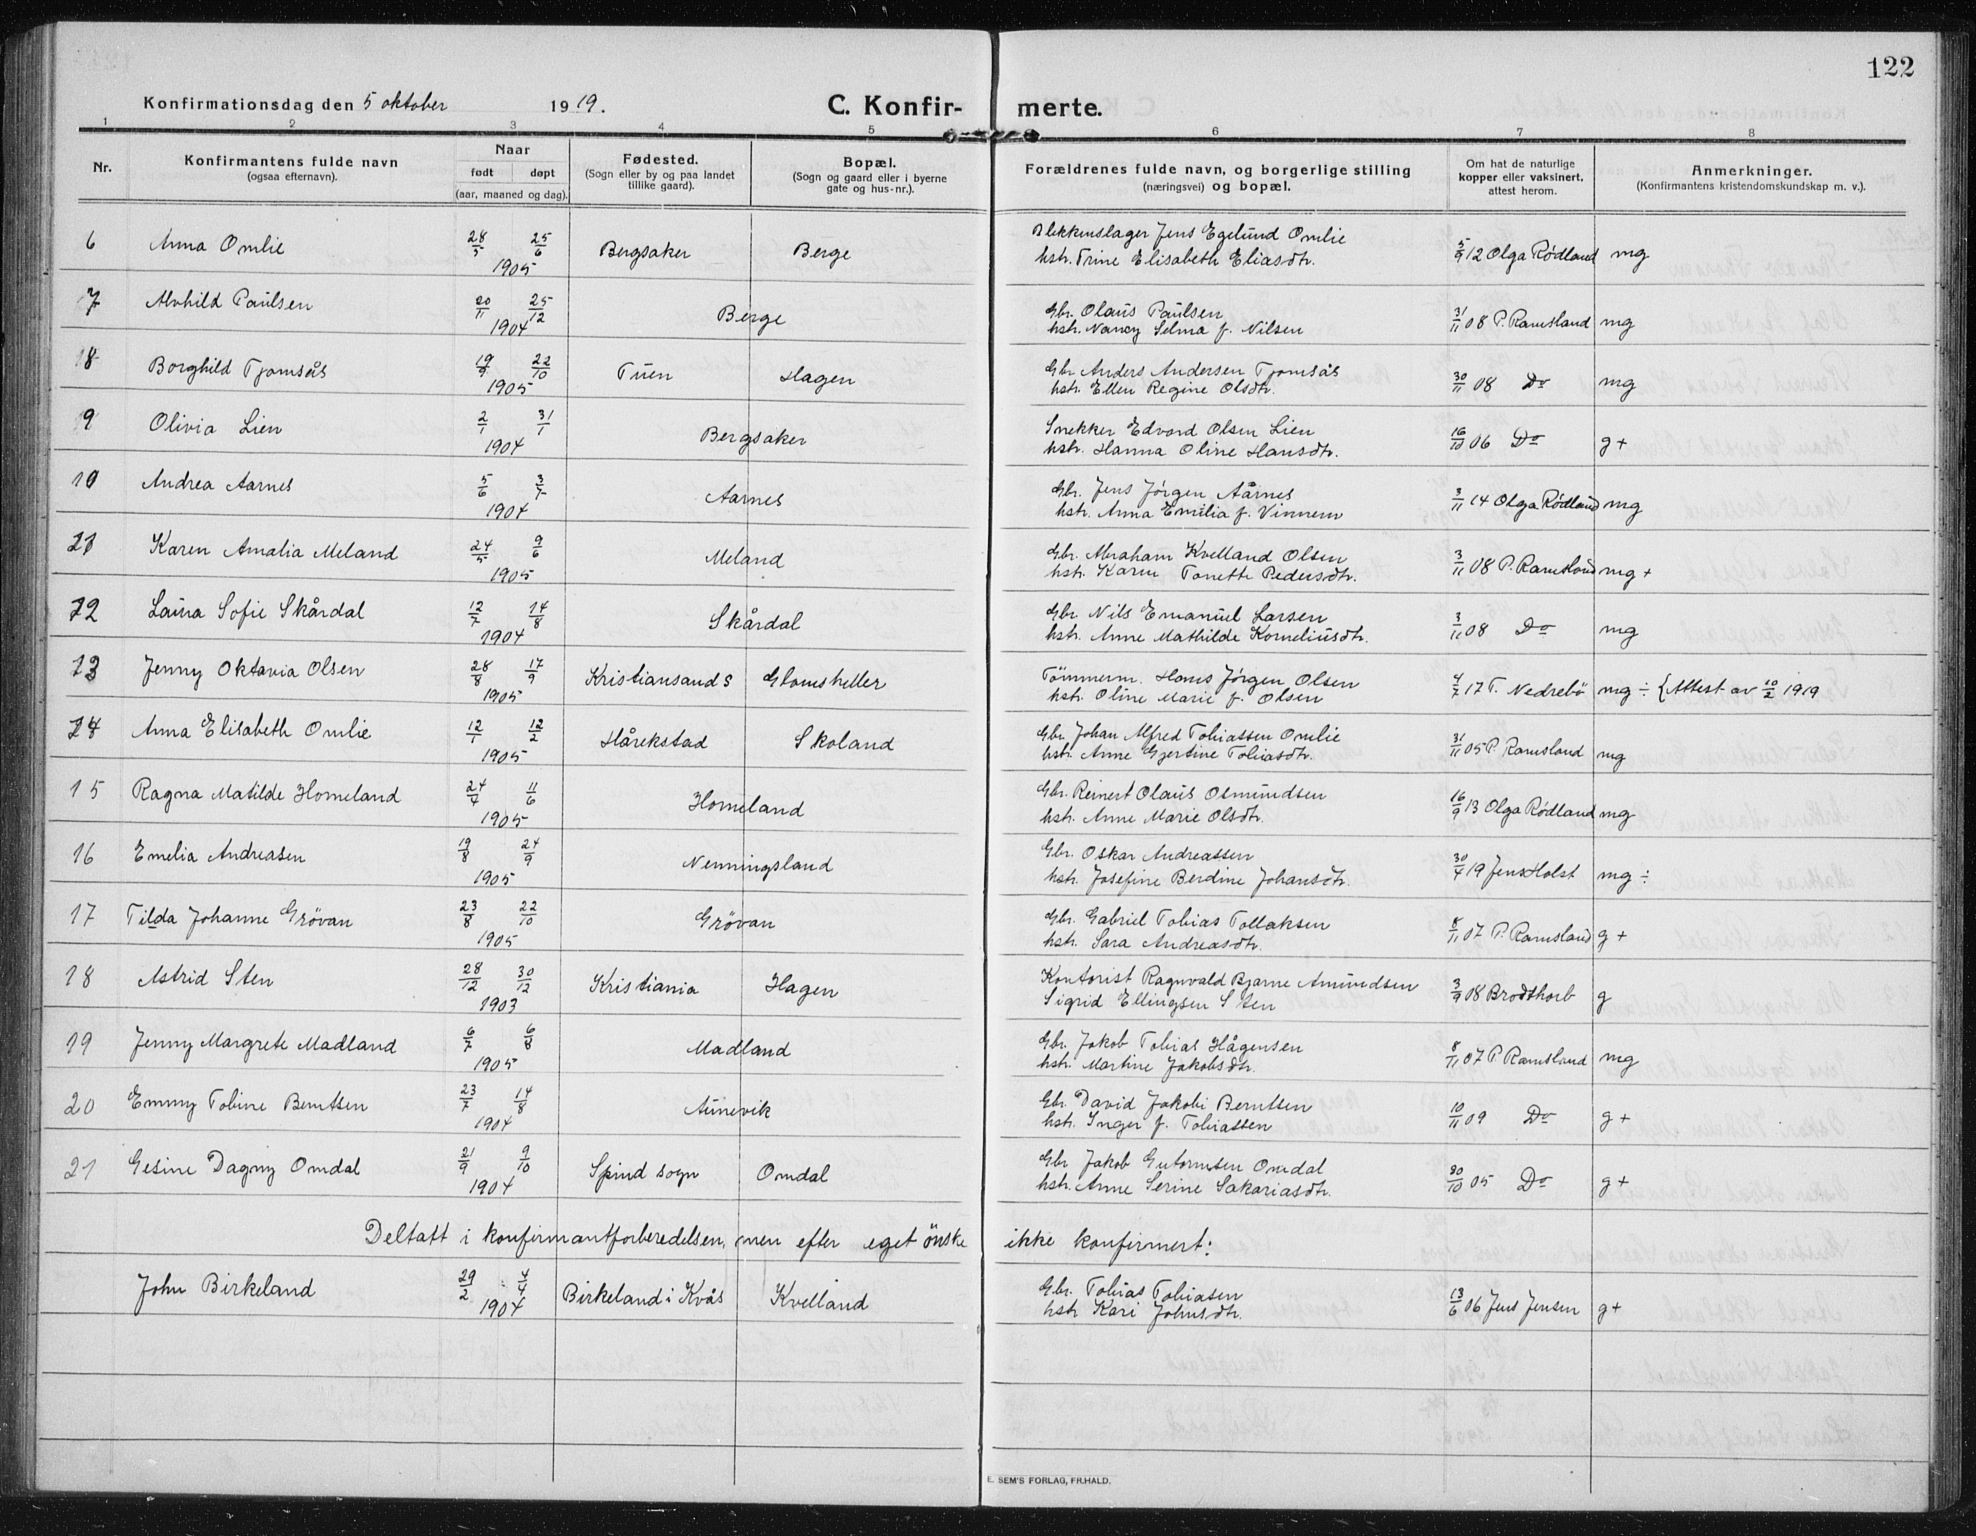 122
Konfirmationsdag den 5 oktober 1919. C. Konfir- merte.
1 2 3 4 5 6 7 8
Nr. Konfirmantens fulde navn (ogsaa efternavn). Naar født døpt (aar, maaned og dag). Fødested. (Sogn eller by og paa landet tillike gaard). Bopæl. (Sogn og gaard eller i byerne gate og hus-nr.). Forældrenes fulde navn, og borgerlige stilling (næringsvei) og bopæl. Om hat de naturlige kopper eller vaksinert, attest herom. Anmerkninger. (Konfirmantens kristendomskundskap m. v.).
6 Anna Omlie 28/5 25/6 1905 Bergsaker Berge Blekkenslager Jens Egelund Omlie
hstr. Trine Elisabeth Eliasdtr. 5/9 12 Olga Rødland mg
7 Alvhild Paulsen 20/11 25/12 1904 Berge Gbr. Olaus Paulsen
hstr. Nancy Selma f. Nilsen 31/11 08 P. Ramsland mg
8 Borghild Tjomsås 19/9 22/10 1905 Tuen Hagen Gbr Anders Andersen Tjomsås
hstr. Ellen Regine Olsdtr. 30/11 08 Do mg
9 Olivia Lien 2/1 31/1 1904 Bergsaker Snekker Edvard Olsen Lien
hstr. Hanna Oline Hansdtr. 16/10 06 Do g+
10 Andrea Aarnes 5/6 3/7 1904 Aarnes Gbr. Jens Jørgen Aårnes
hstr. Anna Emilia f. Vinnem 3/11 14 Olga Rødland mg
21 Karen Amalia Meland 24/5 9/6 1905 Meland Gbr. Abraham Kvelland Olsen
hstr. Karen Tonette Pedersdtr. 3/11 08 P. Ramsland mg+
12 Laura Sofie Skårdal 12/7 14/8 1904 Skårdal Gbr Nils Emanuel Larsen
hstr. Anne Mathilde Korneliusdtr. 3/11 08 Do mg
13 Jenny Oktavia Olsen 28/8 17/9 1905 Kristiansands Glomsheller Tömmerm. Hans Jørgen Olsen
hstr. Oline Marie f. Olsen 4/7 17 T. Nedrebö mg ÷ {Attest av 10/2 1919
14 Anna Elisabeth Omlie 12/1 12/2 1905 Hårekstad Skoland Gbr Johan Alfred Tobiassen Omlie
hstr. Anne Gjertine Tobiasdtr. 31/11 05 P. Ramsland mg
15 Ragna Matilde Homeland 24/4 11/6 1905 Homeland Gbr. Reinert Olaus Osmundsen
hstr. Anne Marie Olsdtr. 16/9 13 Olga Rødland mg
16 Emelia Andreasen 19/8 24/9 1905 Nenningsland Gbr. Oskar Andreassen
hstr. Josefine Berdine Johansdtr. 30/4 19 Jens Holst mg ÷
17 Tilda Johanne Grövan 23/8 22/10 1905 Grövan Gbr. Gabriel Tobias Tollaksen
hstr. Sara Andreasdtr. 8/11 07 P. Ramsland g+
18 Astrid Sten 28/12 30/12 1903 Kristiania Hagen Kontorist Ragnvald Bjarne Amundsen
Sigrid Ellingsen Sten 3/9 08 Brodthorb g
19 Jenny Margrete Madland 6/7 6/8 1905 Madland Gbr. Jakob Tobias Hågensen
hstr. Martine Jakobsdtr. 8/11 07 P. Ramsland mg
20 Emmy Tobine Berntsen 23/7 14/8 1904 Aunevik Gbr. David Jakobi Berntsen
hstr. Inger f. Tobiassen 10/11 09 Do g+
21 Gesine Dagny Omdal 21/9 9/10 1904 Spind sogn Omdal Gbr Jakob Gutormsen Omdal
hstr. Anne Serine Sakariasdtr. 30/10 05 Do g+
Deltatt i konfirmantforberedelsen, men efter eget önske ikke konfirmert:
John Birkeland 29/2 4/4 1904 Birkeland i Kvås Kvelland Gbr. Tobias Tobiasen
hstr Kari Johnsdtr. 13/6 06 Jens Jensen g+
E. SEM'S FORLAG, FR.HALD.